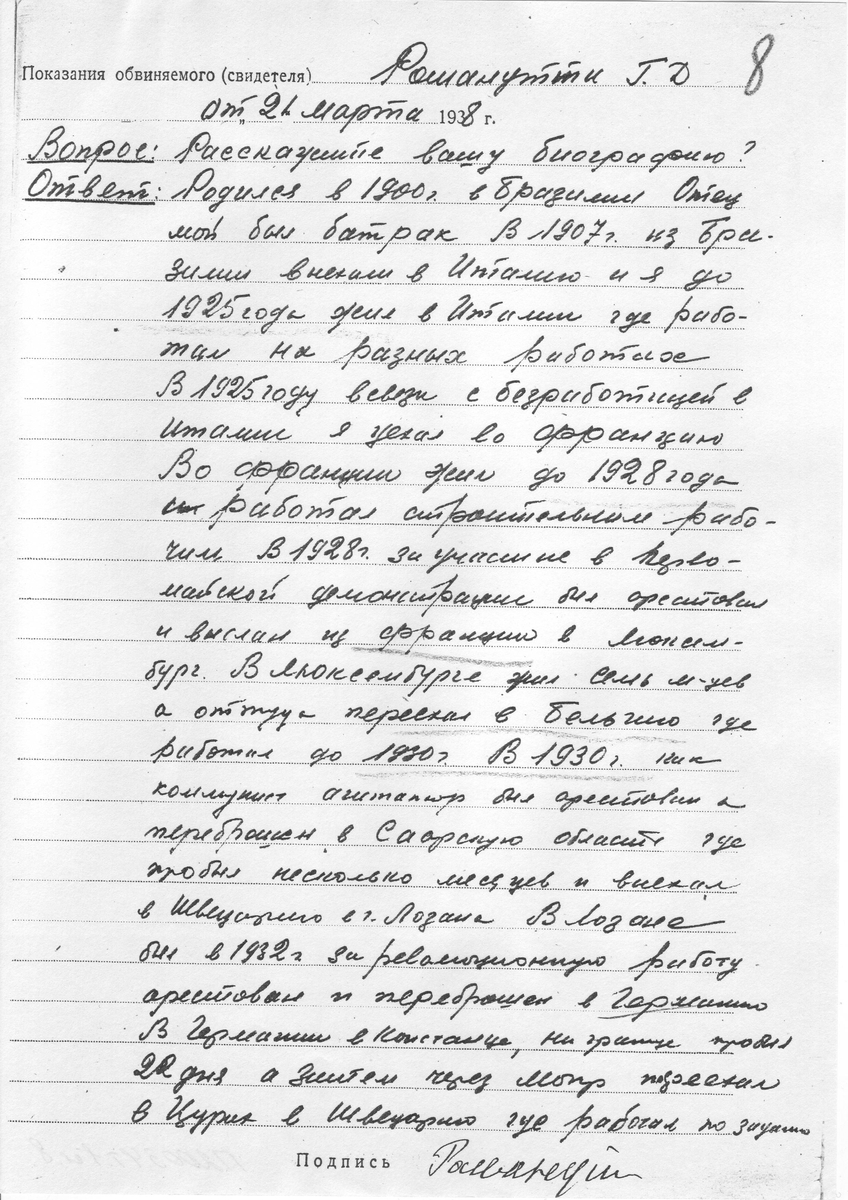 8
Показания обвиняемого (свидетеля) Романутти Г. Д
от „21 марта 1938 г.
Вопрос: Расскажите вашу биографию?
Ответ: Родился в 1900г. в Бразилии Отец
мой был батрак В 1907г. из Бра-
зилии выехали в Италию и я до
1925 года жил в Италии где рабо-
тал на разных работах
В 1925 году всвязи с безработицей в
Италии я уехал во Францию
Во Франции жил до 1928 года
работал строительным рабо-
чим В 1928г. за участие в Перво-
майской демонстрации был арестован
и выслан из Франции в Люксем-
бург. В Люксембурге жил семь м-цев
а оттуда переехал в Бельгию где
работал до 1930г. В 1930г. как
коммунист агитатор был арестован и
переброшен в Саарскую область где
пробыл несколько месяцев и выехал
в Швецарию в г. Лозана В Лозане
был в 1932г за революционную работу
арестован и переброшен в Германию
В Германии в Констанце, на границе пробыл
22 дня а затем через Мопр переехал
в Цурих в Швецарию где работал по заданию
Подпись